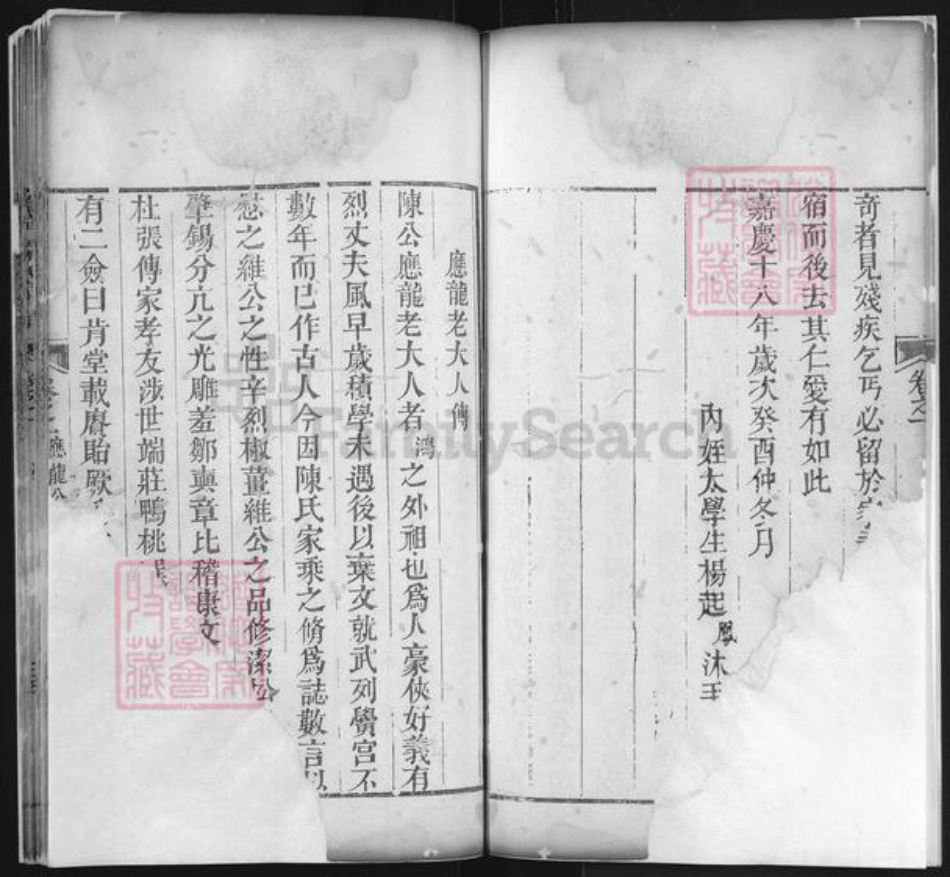 卷之一
奇者見殘疾乞丐必留於家
宿而後去其仁愛有如此
嘉慶十八年歲次癸酉仲冬月
內姪太學生楊起鳳沐手
應龍老大人傳
陳公應龍老大人者鴻之外祖也爲人豪俠好義有
烈丈夫風早歲積學未遇後以棄文就武列黌宮不
數年而已作古人今因陳氏家乘之脩爲誌數言以
慰之維公之性辛烈椒薑維公之品修潔
肇錫分亢之光雕羞鄒奭章比稽康文
杜張傳家孝友涉世端莊鴨桃
有二僉曰肯堂載賡貽厥
應龍公
FamilySearch